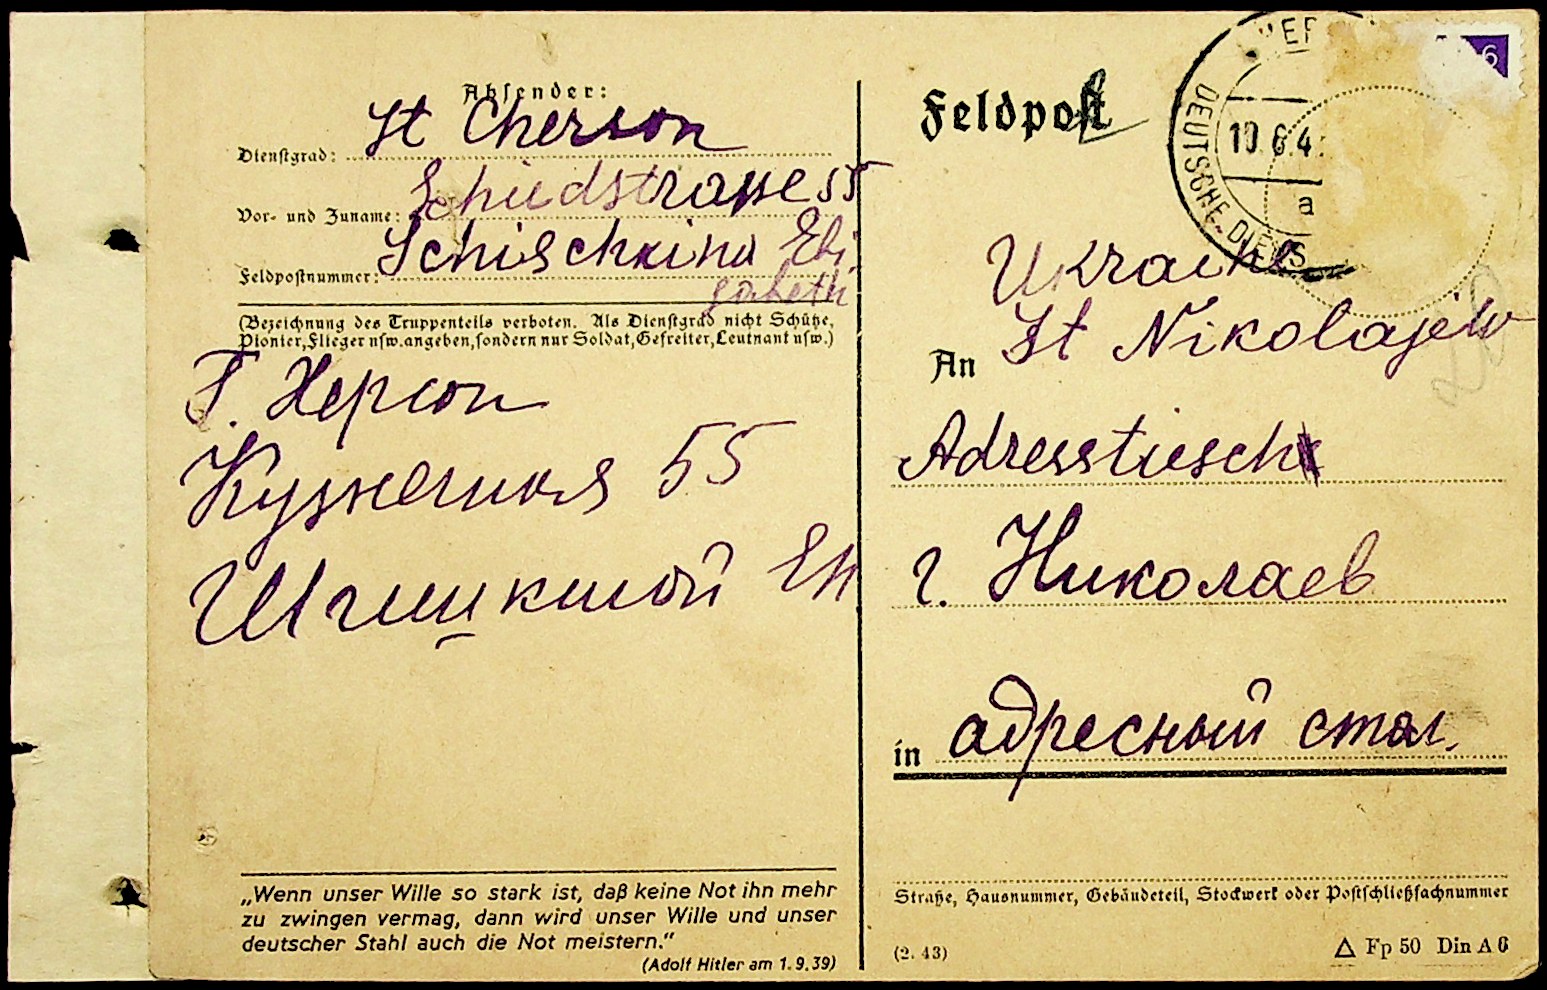 Absender:
St Cherson
Dienstgrad:
Schiedstrasse 55
Vor- und Zuname:
Schischkina Eli
Feldpostnummer:
sabeth
(Bezeichnung des Truppenteils verboten. Als Dienstgrad nicht Schütze,
Pionier, Flieger usw. angeben, sondern nur Soldat, Gefreiter, Leutnant usw.)
Г. Херсон
Кузнечная 55
Шишкиной Ел
„Wenn unser Wille so stark ist, daß keine Not ihn mehr
zu zwingen vermag, dann wird unser Wille und unser
deutscher Stahl auch die Not meistern.“
(Adolf Hitler am 1.9.39)
Feldpost
DEUTSCHE DIENS
10.6.4
a
6
Ukraine
St Nikolajew
An
Adresstisch
г. Николаев
in адресный стол.
Straße, Hausnummer, Gebäudeteil, Stockwerk oder Postschließfachnummer
(2. 43)
△ Fp 50 Din A 6